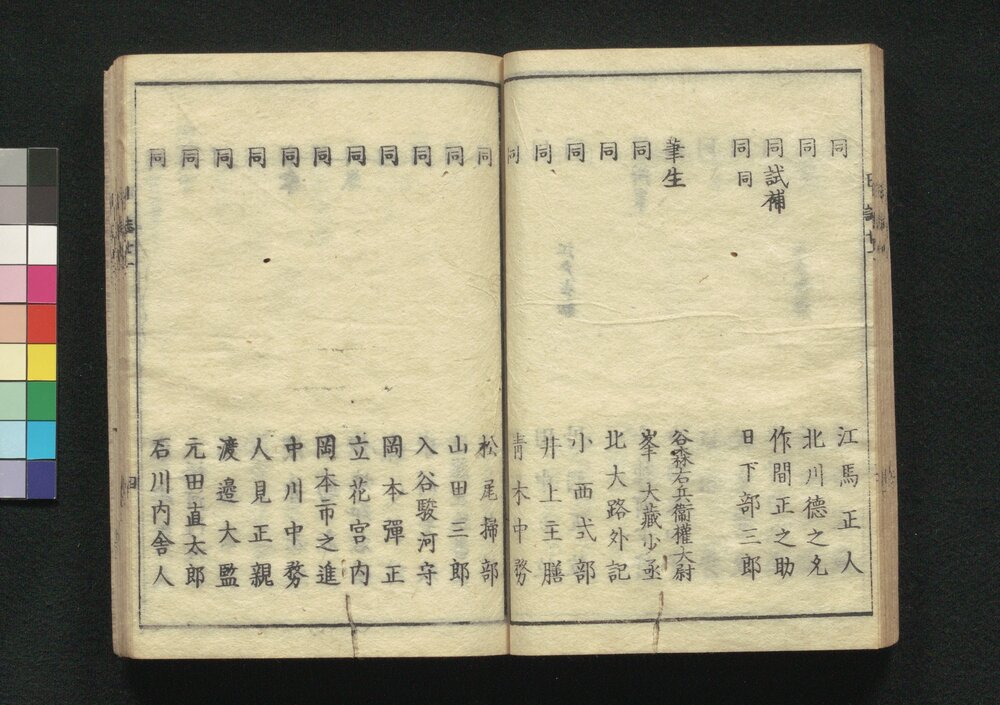 同 江馬正人
同 北川德之允
同試補 作間正之助
同同 日下部三郎
筆生 谷森右兵衞權大尉
同 峯大藏少丞
同 北大路外記
同 小西式部
同 井上主膳
同 青木中務
同 松尾掃部
同 山田三郎
同 入谷駿河守
同 岡本彈正
同 立花宮内
同 岡本市之進
同 中川中務
同 人見正親
同 渡邉大監
同 元田直太郎
同 石川内舎人